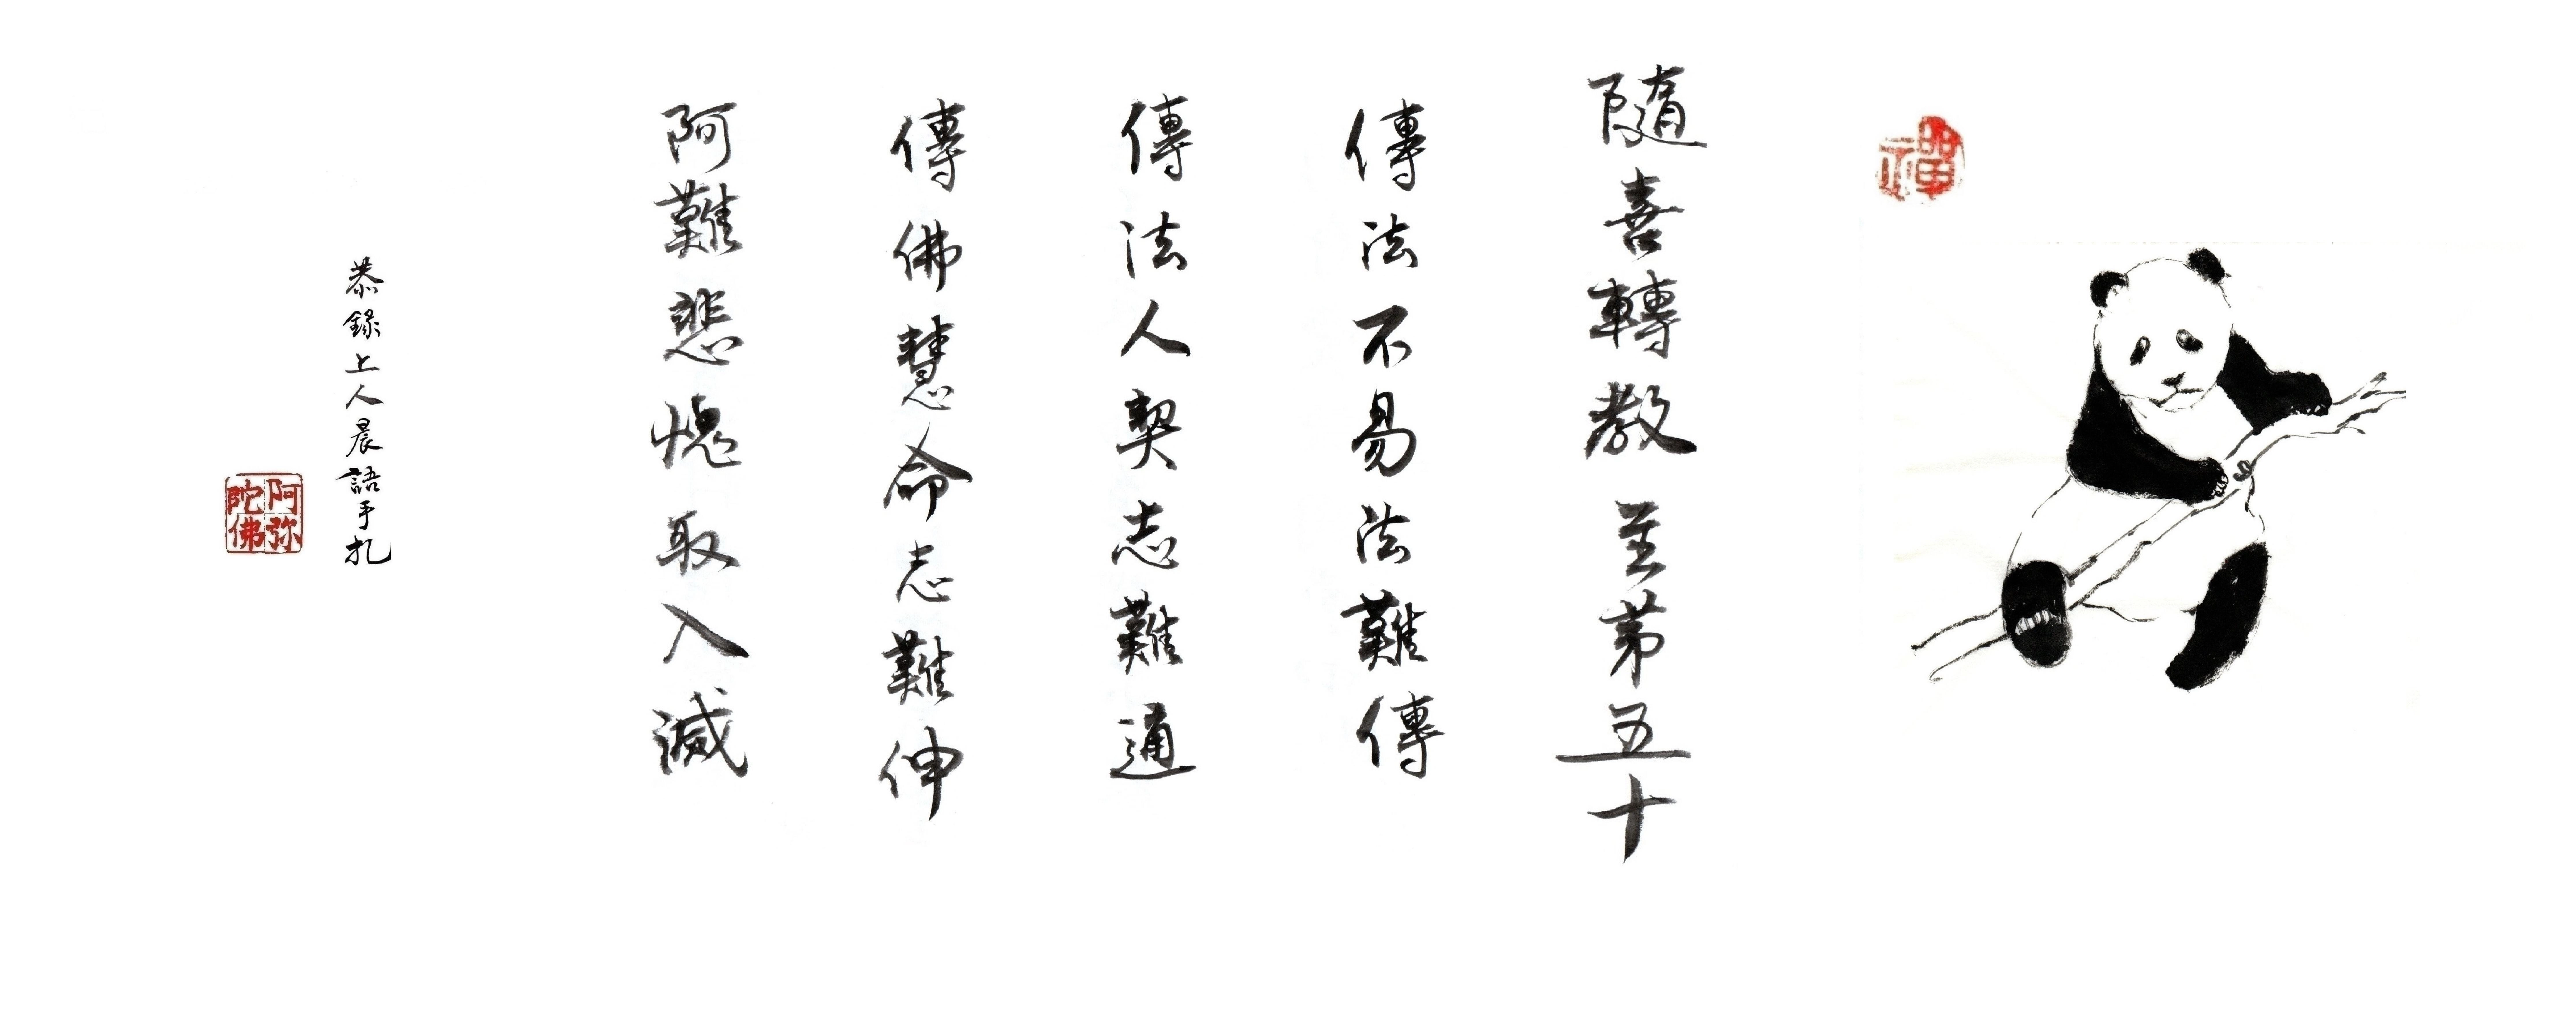 禪
隨喜轉教 至第五十
傳法不易法難傳
傳法人契志難通
傳佛慧命志難伸
阿難悲愧取入滅
恭錄上人晨語手札
阿弥陀佛